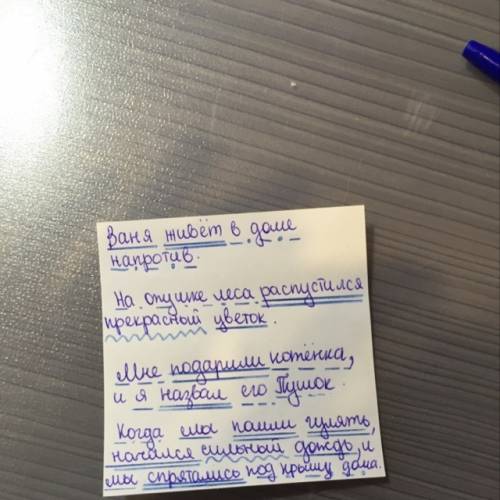 Ваня живёт в доме
напротив.
На опушке леса распустился
прекрасный цветок.
Мне подарили котёнка,
и я назвал его Пушок.
Когда мы пошли гулять,
начался сильный дождь, и
мы спрятались под крышу дома.